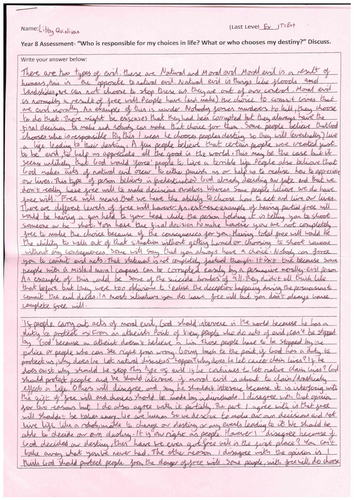 Name: Libby (Last Level Ex
Year 8 Assessment- "Who is responsible for my choices in life? What or who chooses my destiny?" Discuss.
Write your answer below:
There are two types of evil. these are Natural and Moral evil. Moral evil is a result of
humans, this is the opposite to natural evil. Natural evil is things like floods and
landslides, we can not choose to stop these as they are out of our control. Moral evil
is normally a result of free will. People have (and make) the choice to commit crimes that
are evil morally. An example of this is murder. Nobody forces murderers to kill, they choose
to do that. There might be excuses that they had been corrupted but they always have the
final decision to make and nobody can make that choice for them. Some people believe that God
chooses who is responsible. By this I mean he chooses peoples destiny so they will eventually live
a life leading to their destiny. A few people believe that certain people were created just
to be evil, to help us appreciate all the good in the world. this may be the case but it
seems unlikely that God would force people to live a terrible life. People also believe that
God makes acts of natural evil occur. To either punish us or help us to realise how to appreciate
our lives. This type of person believes in predestination. God already deciding our fate and that we
don't really have free will to make decisions ourselves. Whereas some people believe we do have
free will. Free will means that we have the ability to choose how to act and live our lives.
There are different levels of free will however. An extreme example of having partial free will
would be having a gun held to your head while the person holding it is telling you to shoot
someone or be shot. You have the final decision to make however you are not completely
free to make the choice because of the consequences for you. Having total free will would be
the ability to walk out of that situation without getting harmed or choosing to shoot someone
without any consequences. Some will say that you always have a choice. Nobody can force
you to commit evil acts. That statement is not completely factual though. It is true because some
people with a misled moral compass can be corrupted easily by a persuasive morally evil person.
An example of this would be 'some of the suicide bombers of 9/11. They didn't all think like
that before but they were too oblivious to realise the deception happening during the persuasion to
commit the evil deeds. In most situations you do have free will but you don't always have
complete free will.
If people carry out acts of moral evil, God should intervene in the world because he has a
duty to protect us. From an atheists Point of View people who do acts of evil can't be stopped
by God because an atheist doesn't believe in him. Those people have to be stopped by the
police or people who can see right from wrong. Going back to the point of God has a duty to
protect us why does he let natural disasters happen? Why does he let cause chaos lives? If he
does exist why should he stop this type of evil if he continues to let native claim lives? God
should protect people and he should intervene if moral evil is about to claim/drastically
affect a life. Others will disagree and say he shouldn't intervene because it is interfering with
the gift of free will and choices should be made by individuals. I disagree with that opinion
for two reasons but I do also agree with it partially. The part I agree with is that free
will shouldn't be taken away. We are human. So we deserve to make our own decisions and not
live life like a robot, unable to change our destiny or any events leading to it. We should be
able to decide our own destiny. It is our right as people. However I disagree because if
God decided our destiny, then have we ever got free will in the first place? You can't
take away what you've never had. The other reason I disagree with the opinion is I
think God should protect people from the danger of free will. Some people with free will do choose